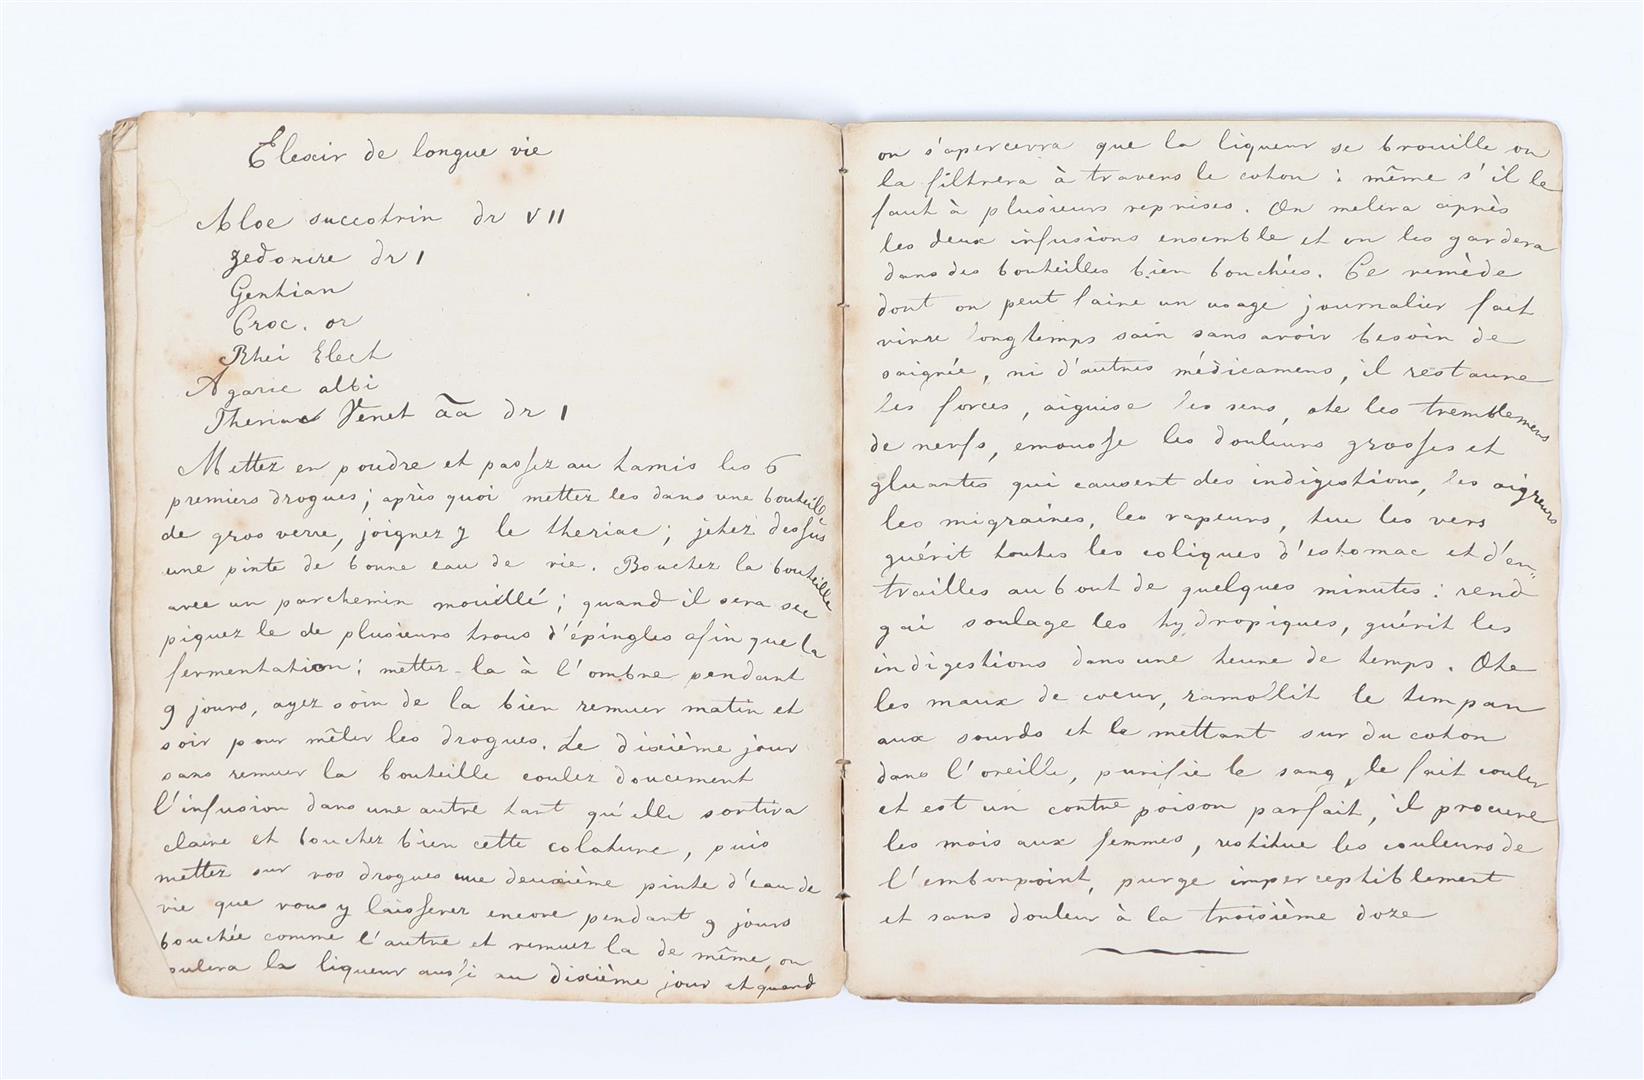 Elexir de longue vie
Aloe succotrin dr VII
zedonire dr I
Gentian
Croc. or
Rhei Elect
Agaric albi
Theriac Venet āa dr I
Mettez en poudre et passez au tamis les 6
premiers drogues; après quoi mettez les dans une bouteille
de gros verre, joignez y le theriac; jetez dessus
une pinte de bonne eau de vie. Bouchez la bouteille
avec un parchemin mouillé; quand il sera sec
piquez le de plusieurs trous d'épingles afin que la
fermentation: mettez-la à l'ombre pendant
9 jours, ayez soin de la bien remuer matin et
soir pour mêler les drogues. Le dixième jour
sans remuer la bouteille coulez doucement
l'infusion dans une autre tant qu'elle sortira
claire et bouchez bien cette colature, puis
mettez sur vos drogues une deuxième pinte d'eau de
vie que vous y laisserez encore pendant 9 jours
bouchée comme l'autre et remuez la de même, on
culera la liqueur aussi au dixième jour et quand
on s'apercevra que la liqueur se brouille on
la filtrera à travers le coton: même s'il le
faut à plusieurs reprises. On melera après
les deux infusions ensemble et on les gardera
dans des bouteilles bien bouchées. Ce remède
dont on peut faire un usage journalier fait
vivre longtemps sain sans avoir besoin de
saignée, ni d'autres médicamens, il restaure
les forces, aiguise les sens, ote les tremblemens
de nerfs, emousse les douleurs grosses et
gluantes qui causent des indigestions, les aigreurs
les migraines, les vapeurs, tue les vers
guérit toutes les coliques d'estomac et d'en"
trailles au bout de quelques minutes: rend
gai soulage les hydropiques, guérit les
indigestions dans une heure de temps. Ote
les maux de coeur, ramollit le timpan
aux sourds et le mettant sur du coton
dans l'oreille, purifie le sang, le fait couler
et est un contre poison parfait, il procure
les mois aux femmes, restitue les couleurs de
l'embonpoint, purge imperceptiblement
et sans douleur à la troisième doze